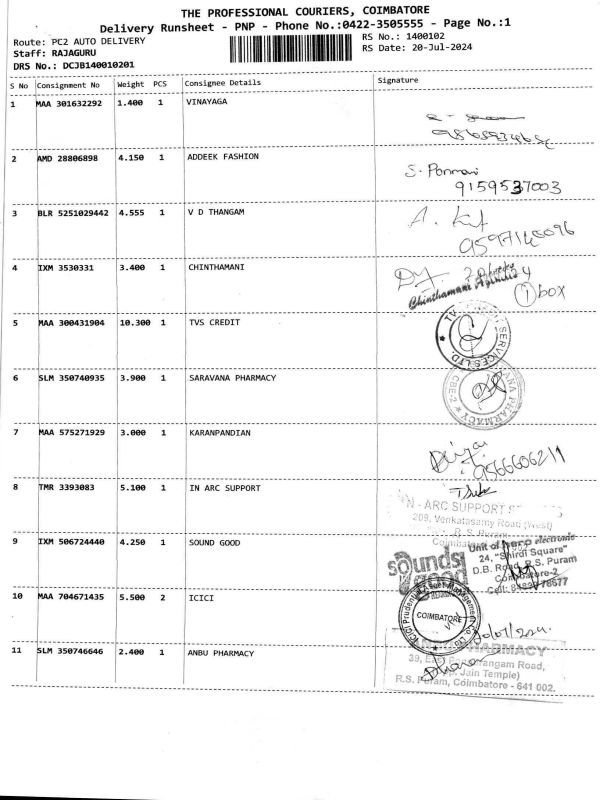 THE PROFESSIONAL COURIERS, COIMBATORE
Delivery Runsheet - PNP - Phone No.:0422-3505555 - Page No.:1
Route: PC2 AUTO DELIVERY
RS No.: 1400102
Staff: RAJAGURU
RS Date: 20-Jul-2024
DRS No.: DCJB140010201
S No Consignment No Weight PCS Consignee Details Signature
1 MAA 301632292 1.400 1 VINAYAGA
2 AMD 28806898 4.150 1 ADDEEK FASHION
9159537003
3 BLR 5251029442 4.555 1 V D THANGAM
A.
4 IXM 3530331 3.400 1 CHINTHAMANI
Chinthamani
1 box
5 MAA 300431904 10.300 1 TVS CREDIT
TV SERVICES LTD.
6 SLM 350740935 3.900 1 SARAVANA PHARMACY
ANA PHARMACY CBE-2
7 MAA 575271929 3.000 1 KARANPANDIAN
8 TMR 3393083 5.100 1 IN ARC SUPPORT
N - ARC SUPPORT
209, Venkatasamy Road (West)
R.S. Puram
9 IXM 506724440 4.250 1 SOUND GOOD
sounds good
Unit of hero electronic
24, "Shirdi Square"
D.B. Road, R.S. Puram
Coimbatore-2
Cell:
10 MAA 704671435 5.500 2 ICICI
ICICI Prudential Management Co. Ltd.
COIMBATORE
11 SLM 350746646 2.400 1 ANBU PHARMACY
PHARMACY
39, East Road,
Jain Temple)
R.S. Puram, Coimbatore - 641 002.